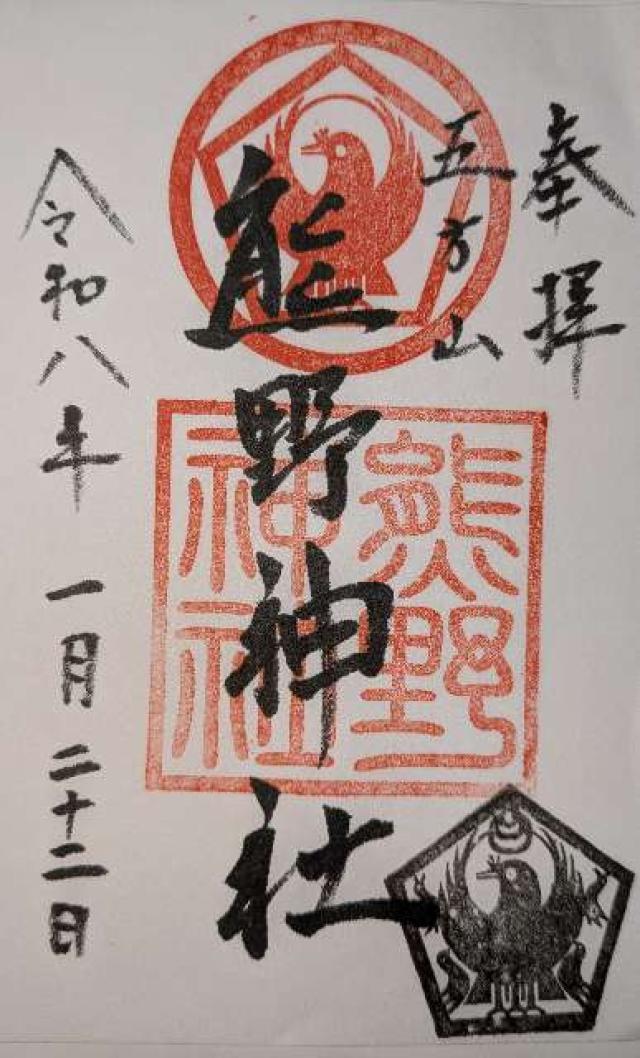 奉拝
五方山
熊野神社
熊野
神社
令和八年 一月 二十二日